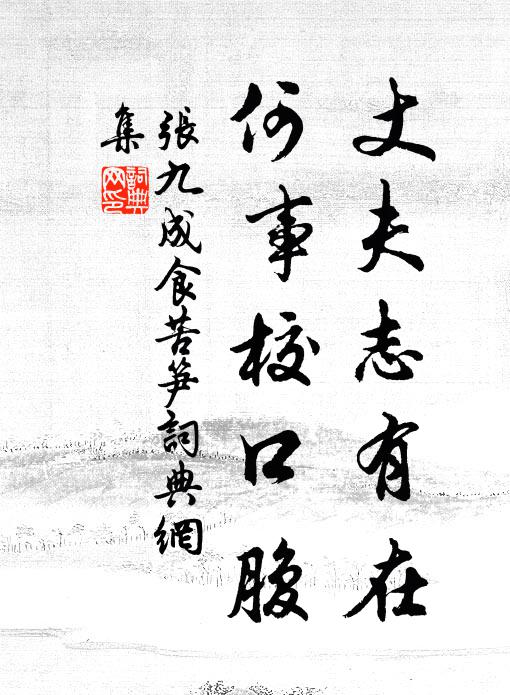 丈夫志有在
何事校口腹
張九成食苦笋詞典網
集
詞典網印